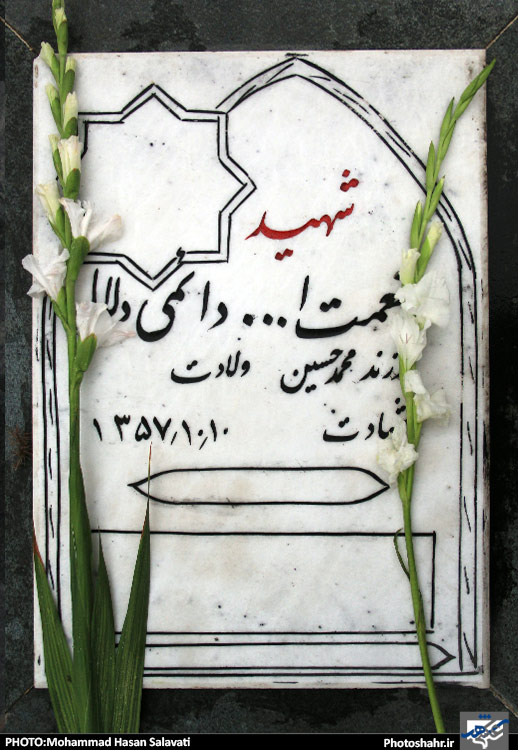 شهید
نعمت ا... دائمی دلا
فرزند محمدحسین ولادت
شهادت ۱۳۵۷٫۱۰٫۱۰
PHOTO:Mohammad Hasan Salavati
Photoshahr.ir
شهر